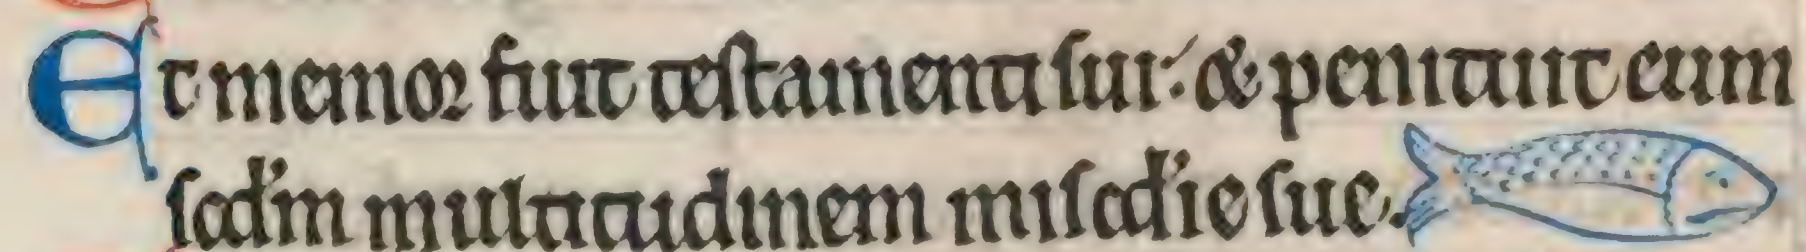 Et memor fuit testamenti sui: & penituit eum
scd'm multitudinem misc'die sue.